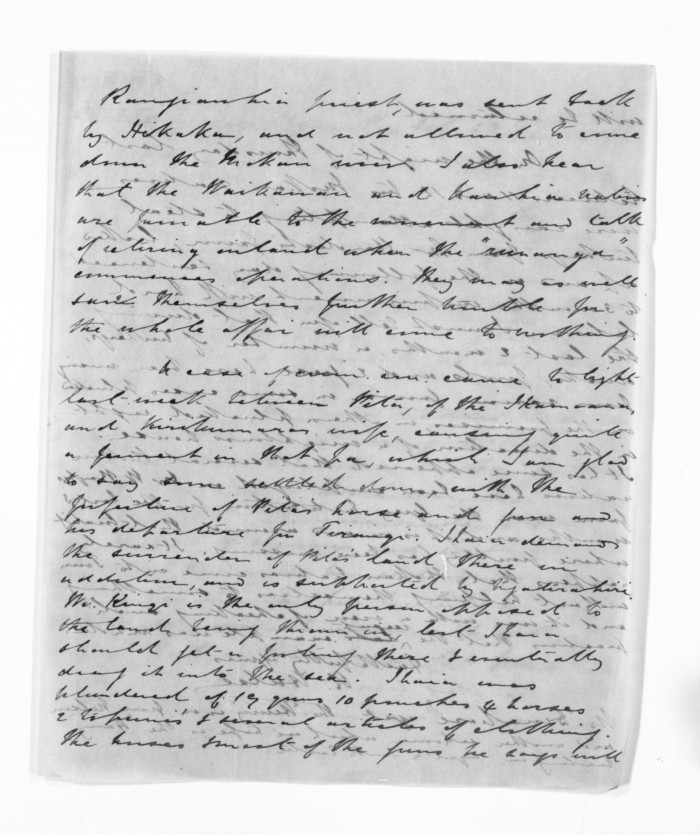 priest, was sent back
by Hokaka, and not allowed to come
down the river I also hear
that the and natives
are to the movement and talk
of retiring inland when the "runanga"
commences operations. They may as well
save themselves further trouble for
the whole affair will come to nothing.
A case of crim. con. came to light
last week between Pita, of the
and wife, causing quite
a ferment in that pa, which I am glad
to say some settled down with the
forfeiture of Pita's horse and gun and
his departure for Turangi. Ihaia demands
the surrender of Pita's land there in
addition, and is supported by
Wi Kingi is the only person opposed to
the land being thrown in lest Ihaia
should get a footing there & eventually
drag it into the sea. Ihaia was
plundered of 19 guns 10 pouches 4 horses
2 & several articles of clothing.
The horses & most of the guns he says will